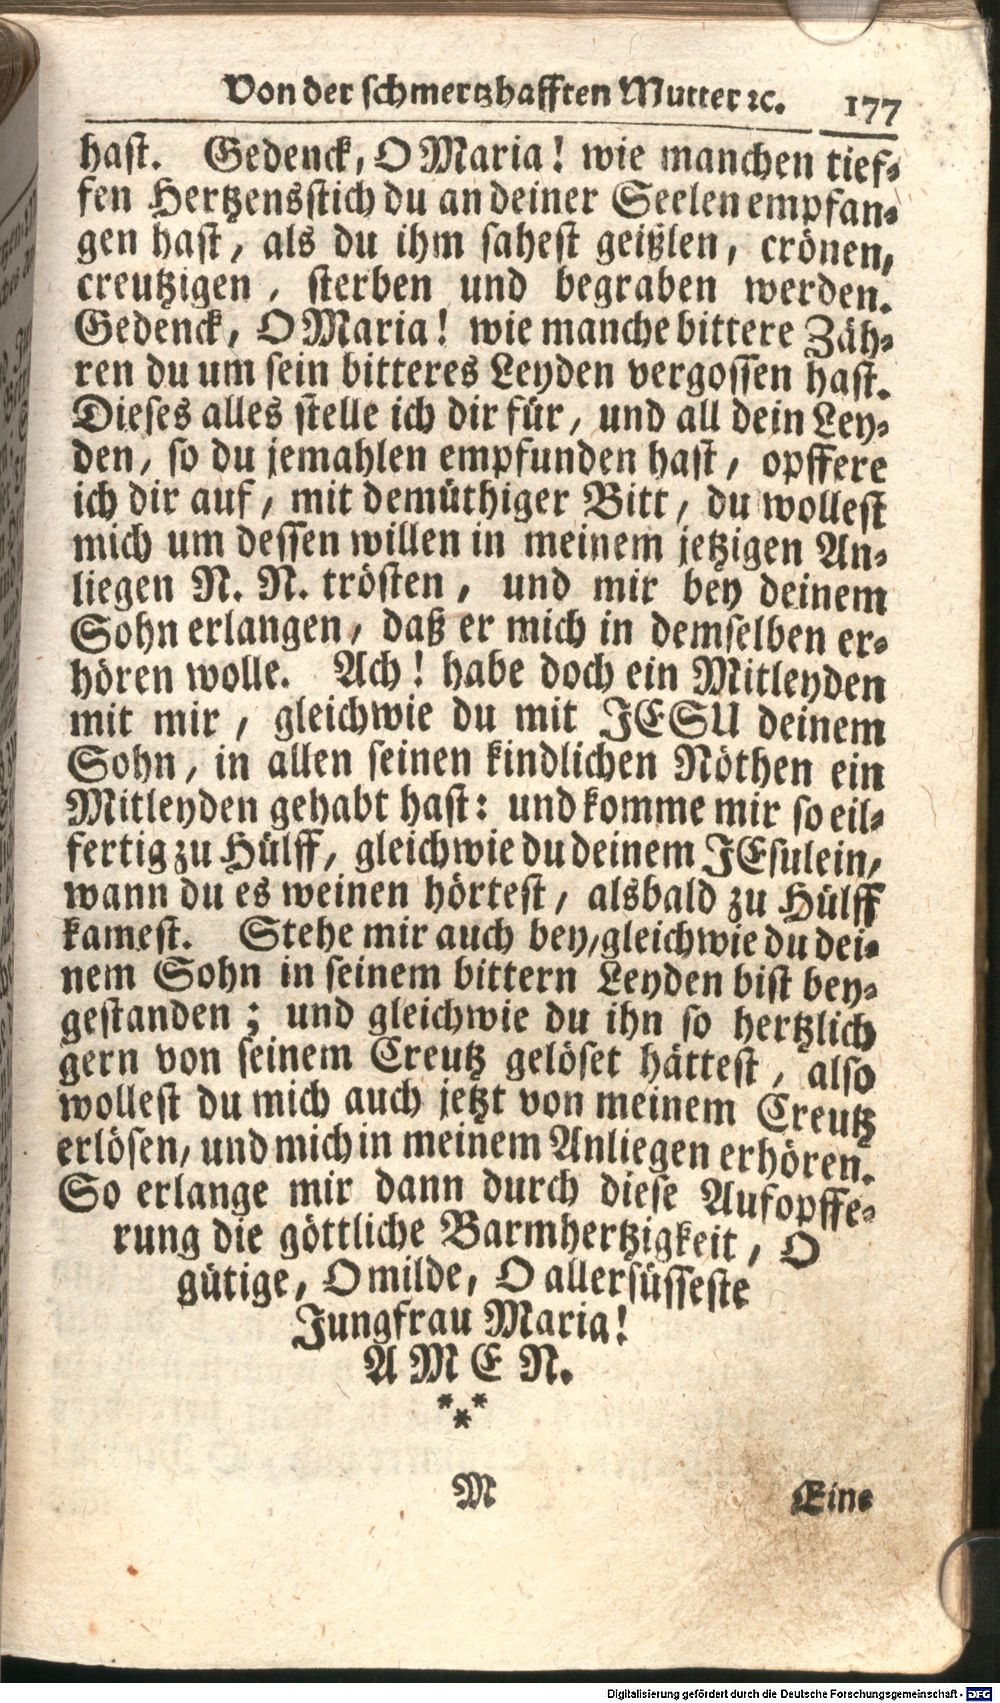 Von der schmertzhafften Mutter ꝛc. 177
hast. Gedenck, O Maria! wie manchen tief-
fen Hertzensstich du an deiner Seelen empfan-
gen hast, als du ihm sahest geißlen, crönen,
creutzigen, sterben und begraben werden.
Gedenck, O Maria! wie manche bittere Zäh-
ren du um sein bitteres Leyden vergossen hast.
Dieses alles stelle ich dir für, und all dein Ley-
den, so du jemahlen empfunden hast, opffere
ich dir auf, mit demüthiger Bitt, du wollest
mich um dessen willen in meinem jetzigen An-
liegen N. N. trösten, und mir bey deinem
Sohn erlangen, daß er mich in demselben er-
hören wolle. Ach! habe doch ein Mitleyden
mit mir, gleichwie du mit JESU deinem
Sohn, in allen seinen kindlichen Nöthen ein
Mitleyden gehabt hast: und komme mir so eil-
fertig zu Hülff, gleichwie du deinem JEsulein,
wann du es weinen hörtest, alsbald zu Hülff
kamest. Stehe mir auch bey, gleichwie du dei-
nem Sohn in seinem bittern Leyden bist bey-
gestanden; und gleichwie du ihn so hertzlich
gern von seinem Creutz gelöset hättest, also
wollest du mich auch jetzt von meinem Creutz
erlösen, und mich in meinem Anliegen erhören.
So erlange mir dann durch diese Aufopffe-
rung die göttliche Barmhertzigkeit, O
gütige, O milde, O allersüsseste
Jungfrau Maria!
AMEN.
***
M Eine
Digitalisierung gefördert durch die Deutsche Forschungsgemeinschaft - DFG